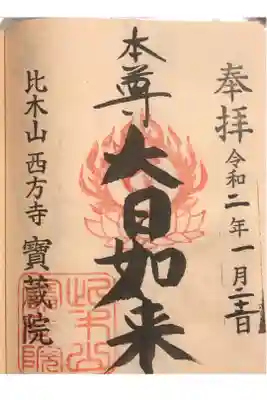 奉拝 令和二年一月
本尊 大日如来
比木山 西方寺 寶蔵院